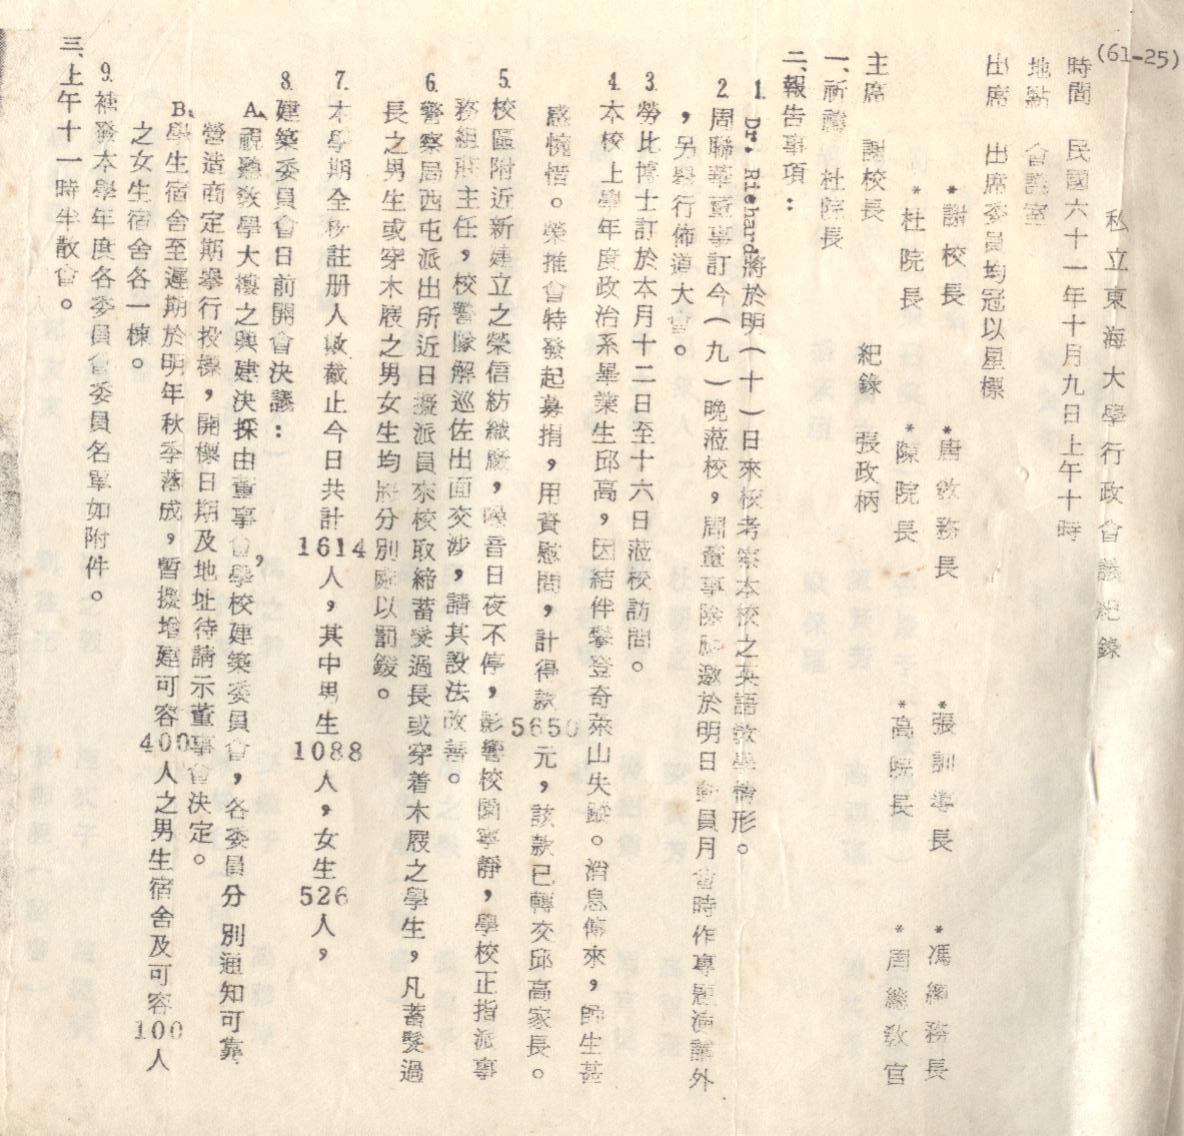 (61-25)
私立東海大學行政會議紀錄
時間 民國六十一年十月九日上午十時
地點 會議室
出席 出席委員均冠以星標
*謝校長 *唐敎務長 *張訓導長 *馮總務長
*杜院長 *陳院長 *高院長 *周總敎官
主席 謝校長 紀錄 張政柄
一、祈禱 杜院長
二、報告事項：
1. Dr. Richard將於明(十)日來校考察本校之英語敎學情形。
2. 周聯華董事訂今(九)晚蒞校，周董事除應邀於明日動員月會時作專題演講外
，另舉行佈道大會。
3. 勞比博士訂於本月十二日至十六日蒞校訪問。
4. 本校上學年度政治系畢業生邱高，因結伴攀登奇萊山失蹤。消息傳來，師生甚
感惋惜。榮推會特發起募捐，用資慰問，計得款5650元，該款已轉交邱高家長。
5. 校區附近新建立之榮信紡織廠，噪音日夜不停，影響校園寧靜，學校正指派事
務組莊主任，校警隊解巡佐出面交涉，請其設法改善。
6. 警察局西屯派出所近日擬派員來校取締蓄髮過長或穿着木屐之學生，凡蓄髮過
長之男生或穿木屐之男女生均將分別處以罰鍰。
7. 本學期全校註册人數截止今日共計1614人，其中男生1088人，女生526人，
8. 建築委員會日前開會決議：
A、視聽敎學大樓之興建決採由董事會，學校建築委員會，各委員分別通知可靠
營造商定期舉行投標，開標日期及地址待請示董事會決定。
B、學生宿舍至遲期於明年秋季落成，暫擬增建可容400人之男生宿舍及可容100人
之女生宿舍各一棟。
9. 補發本學年度各委員會委員名單如附件。
三、上午十一時半散會。